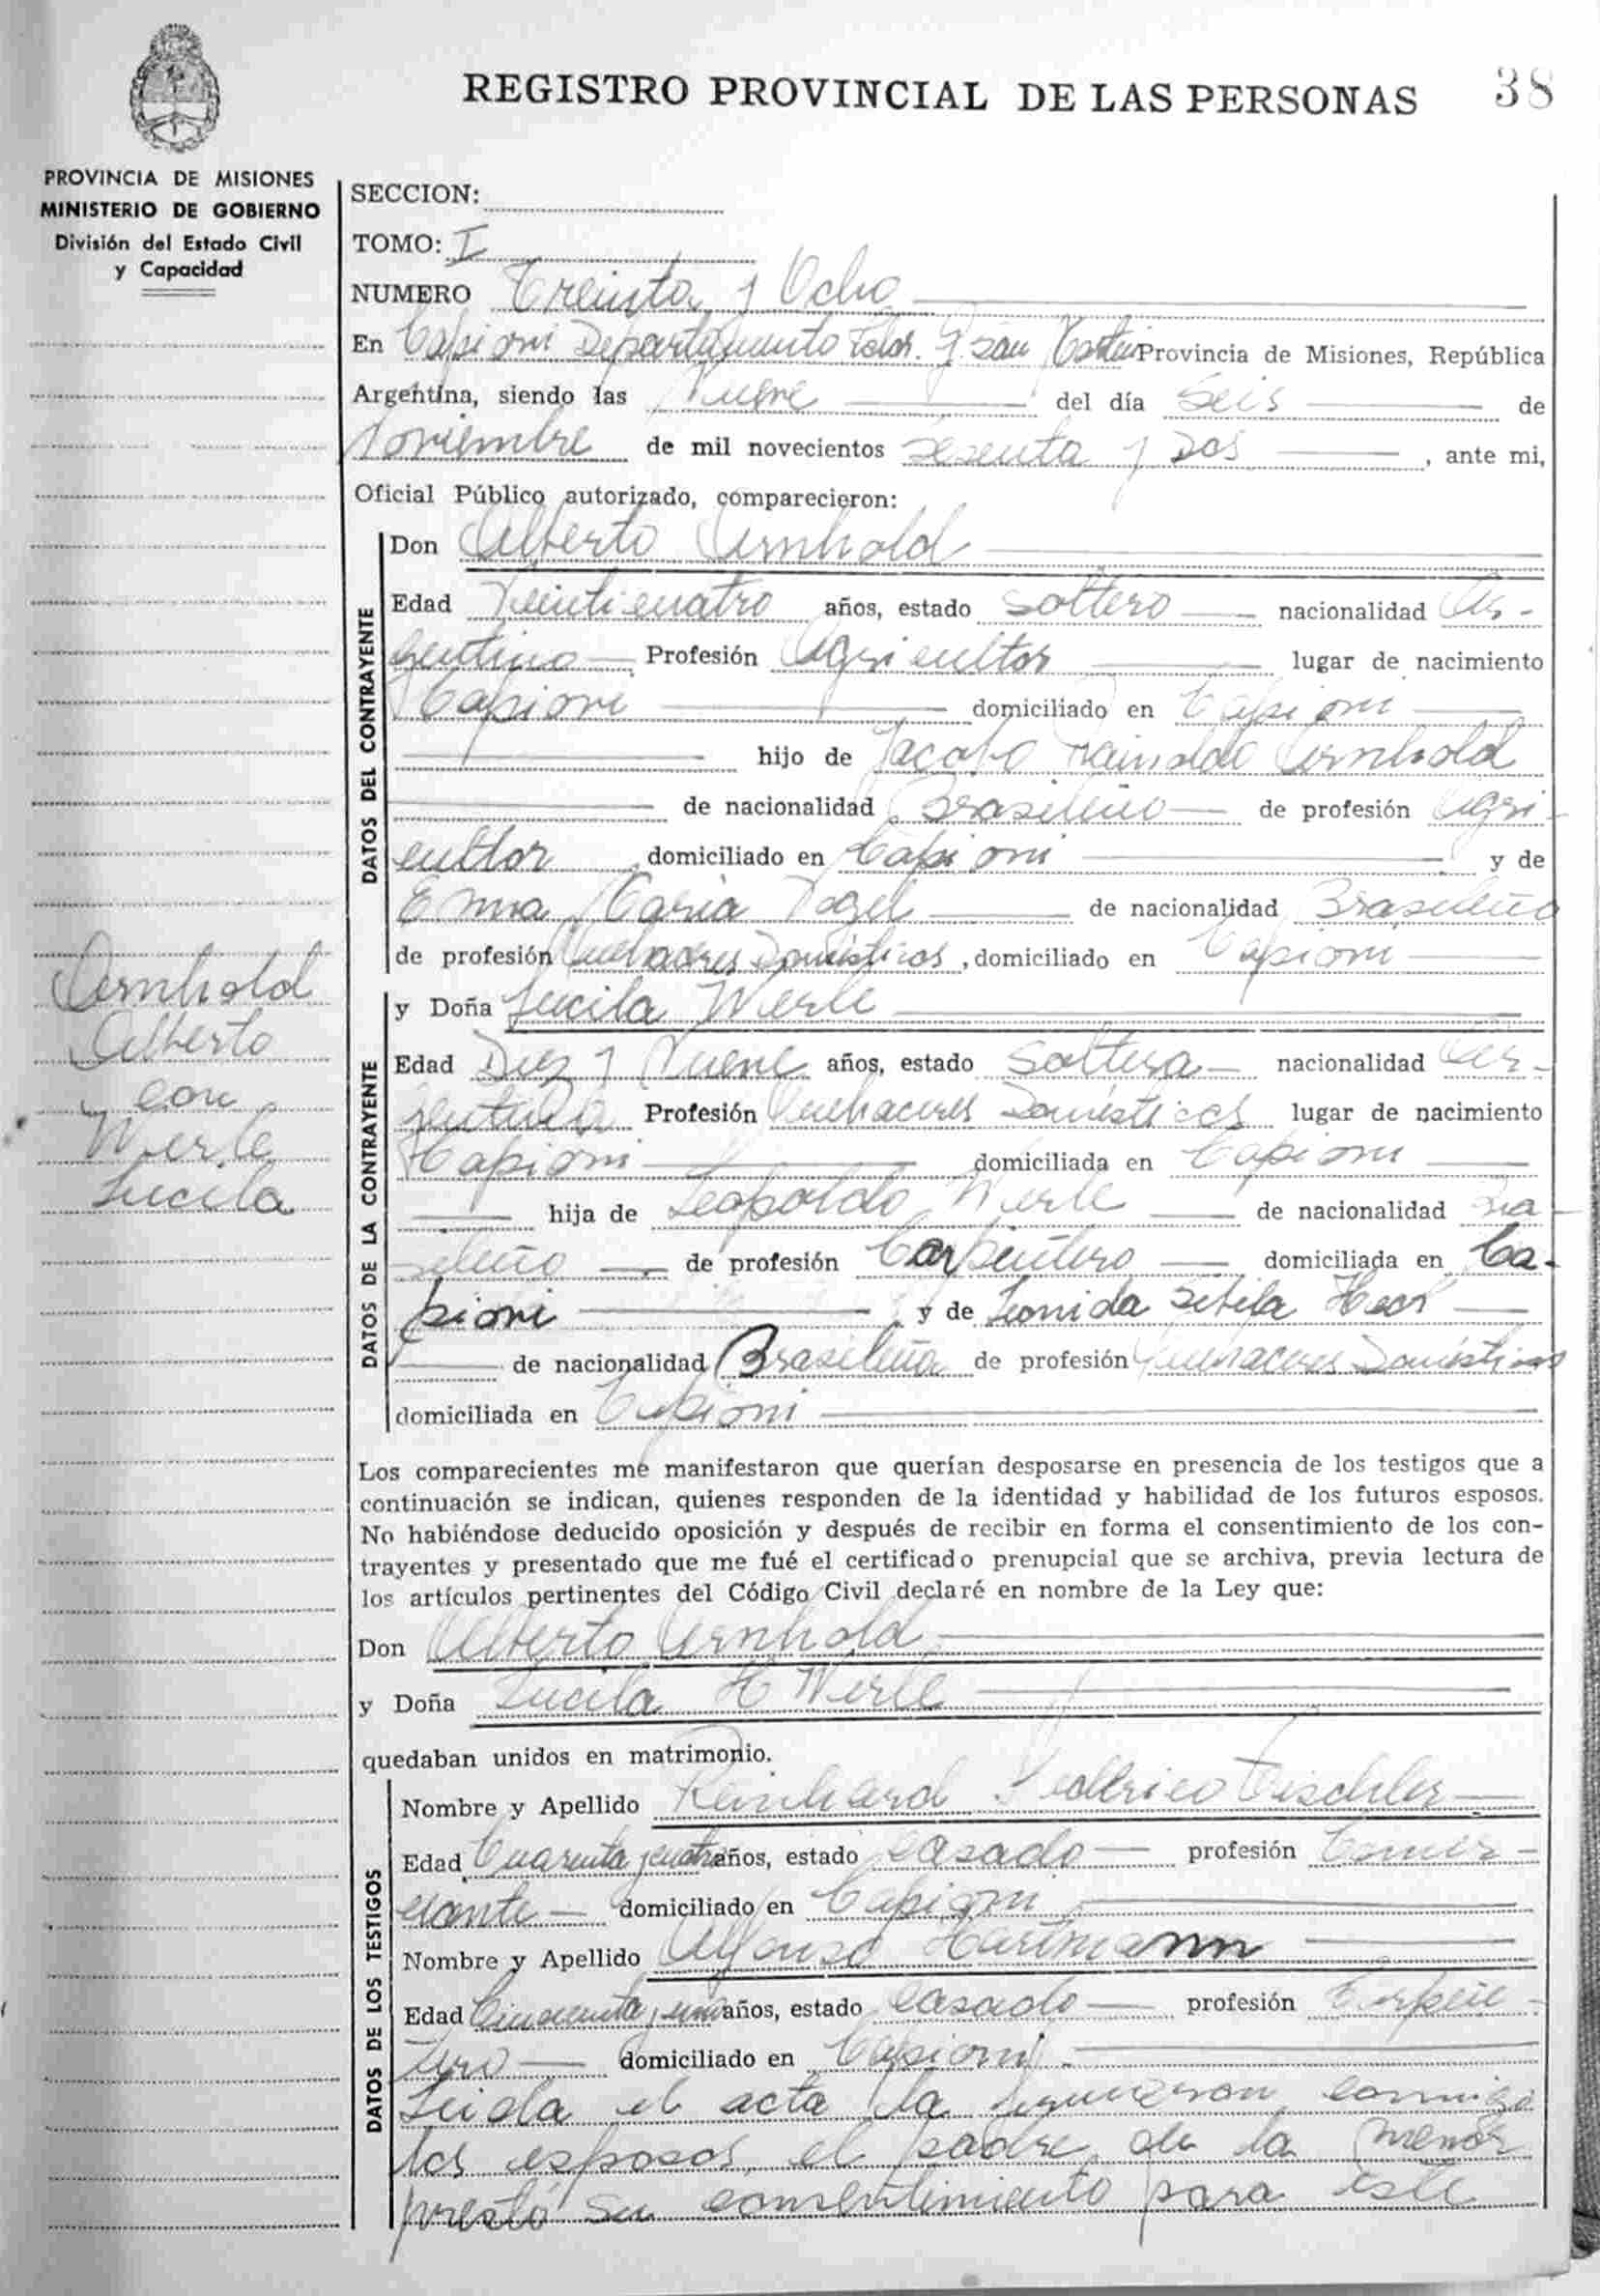 REGISTRO PROVINCIAL DE LAS PERSONAS 38
PROVINCIA DE MISIONES
MINISTERIO DE GOBIERNO
División del Estado Civil
y Capacidad
SECCION:
TOMO: I
NUMERO Treinta y Ocho
En Capioví Departamento Ldor. G. San Martín Provincia de Misiones, República
Argentina, siendo las Nueve del día Seis de
Noviembre de mil novecientos Sesenta y Dos, ante mi,
Oficial Público autorizado, comparecieron:
DATOS DEL CONTRAYENTE
Don Alberto Arnhold
Edad Veinticuatro años, estado Soltero nacionalidad Ar-
gentino Profesión Agricultor lugar de nacimiento
Capioví domiciliado en Capioví
hijo de Jacobo Reinoldo Arnhold
de nacionalidad Brasileño de profesión Agri-
cultor domiciliado en Capioví y de
Emma María Vogel de nacionalidad Brasileña
de profesión Quehaceres Domésticos, domiciliado en Capioví
Arnhold
Alberto
con
Werle
Lucila
DATOS DE LA CONTRAYENTE
y Doña Lucila Werle
Edad Diez y Nueve años, estado Soltera nacionalidad Ar-
gentina Profesión Quehaceres Domésticos lugar de nacimiento
Capioví domiciliada en Capioví
hija de Leopoldo Werle de nacionalidad Bra-
sileño de profesión Carpintero domiciliada en Ca-
pioví y de Leonida Sibila
de nacionalidad Brasileña de profesión Quehaceres Domésticos
domiciliada en Capioví
Los comparecientes me manifestaron que querían desposarse en presencia de los testigos que a
continuación se indican, quienes responden de la identidad y habilidad de los futuros esposos.
No habiéndose deducido oposición y después de recibir en forma el consentimiento de los con-
trayentes y presentado que me fué el certificado prenupcial que se archiva, previa lectura de
los artículos pertinentes del Código Civil declaré en nombre de la Ley que:
Don Alberto Arnhold
y Doña Lucila Werle
quedaban unidos en matrimonio.
DATOS DE LOS TESTIGOS
Nombre y Apellido Reinhard Federico Tischler
Edad Cuarenta y cuatro años, estado Casado profesión Comer-
ciante domiciliado en Capioví
Nombre y Apellido Alfonso Hartmann
Edad Cincuenta y un años, estado Casado profesión Carpin-
tero domiciliado en Capioví
Leida el acta la firmaron conmigo
los esposos, el padre de la menor
prestó su consentimiento para este